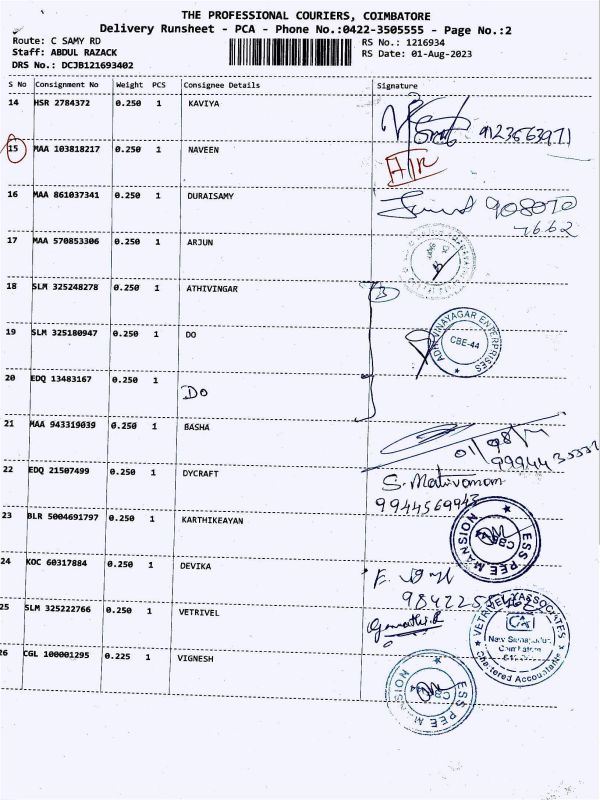 THE PROFESSIONAL COURIERS, COIMBATORE
Delivery Runsheet - PCA - Phone No.:0422-3505555 - Page No.:2
Route: C SAMY RD
RS No.: 1216934
Staff: ABDUL RAZACK
RS Date: 01-Aug-2023
DRS No.: DCJB121693402
S No Consignment No Weight PCS Consignee Details Signature
14 HSR 2784372 0.250 1 KAVIYA
9123563971
15 MAA 103818217 0.250 1 NAVEEN
16 MAA 861037341 0.250 1 DURAISAMY
908070
7662
17 MAA 570853306 0.250 1 ARJUN
18 SLM 325248278 0.250 1 ATHIVINGAR
3
19 SLM 325180947 0.250 1 DO
ADHI VINAYAGAR ENTERPRISES
CBE-44
20 EDQ 13483167 0.250 1
DO
21 MAA 943319039 0.250 1 BASHA
01/08/
22 EDQ 21507499 0.250 1 DYCRAFT
S. Mativanan
9944569943
23 BLR 5004691797 0.250 1 KARTHIKEAYAN
ESS PEE MANSION
24 KOC 60317884 0.250 1 DEVIKA
25 SLM 325222766 0.250 1 VETRIVEL
VETRIVEL ASSOCIATES
CA
Chartered Accountants
26 CGL 100001295 0.225 1 VIGNESH
ESS PEE MANSION